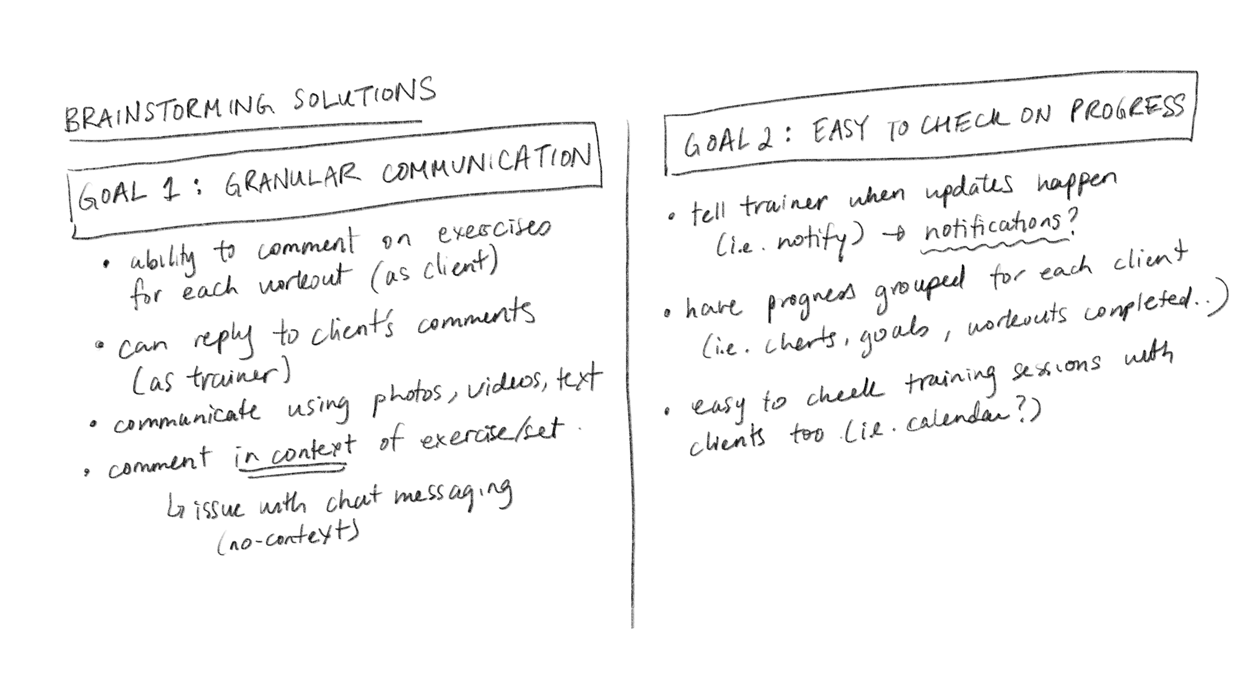 BRAINSTORMING SOLUTIONS
GOAL 1: GRANULAR COMMUNICATION
• ability to comment on exercises
for each workout (as client)
• can reply to client's comments
(as trainer)
• communicate using photos, videos, text
• comment in context of exercise/set.
↳ issue with chat messaging
(no-context)
GOAL 2: EASY TO CHECK ON PROGRESS
• tell trainer when updates happen
(i.e. notify) → notifications?
• have progress grouped for each client
(i.e. charts, goals, workouts completed..)
• easy to check training sessions with
clients too (i.e. calendar?)